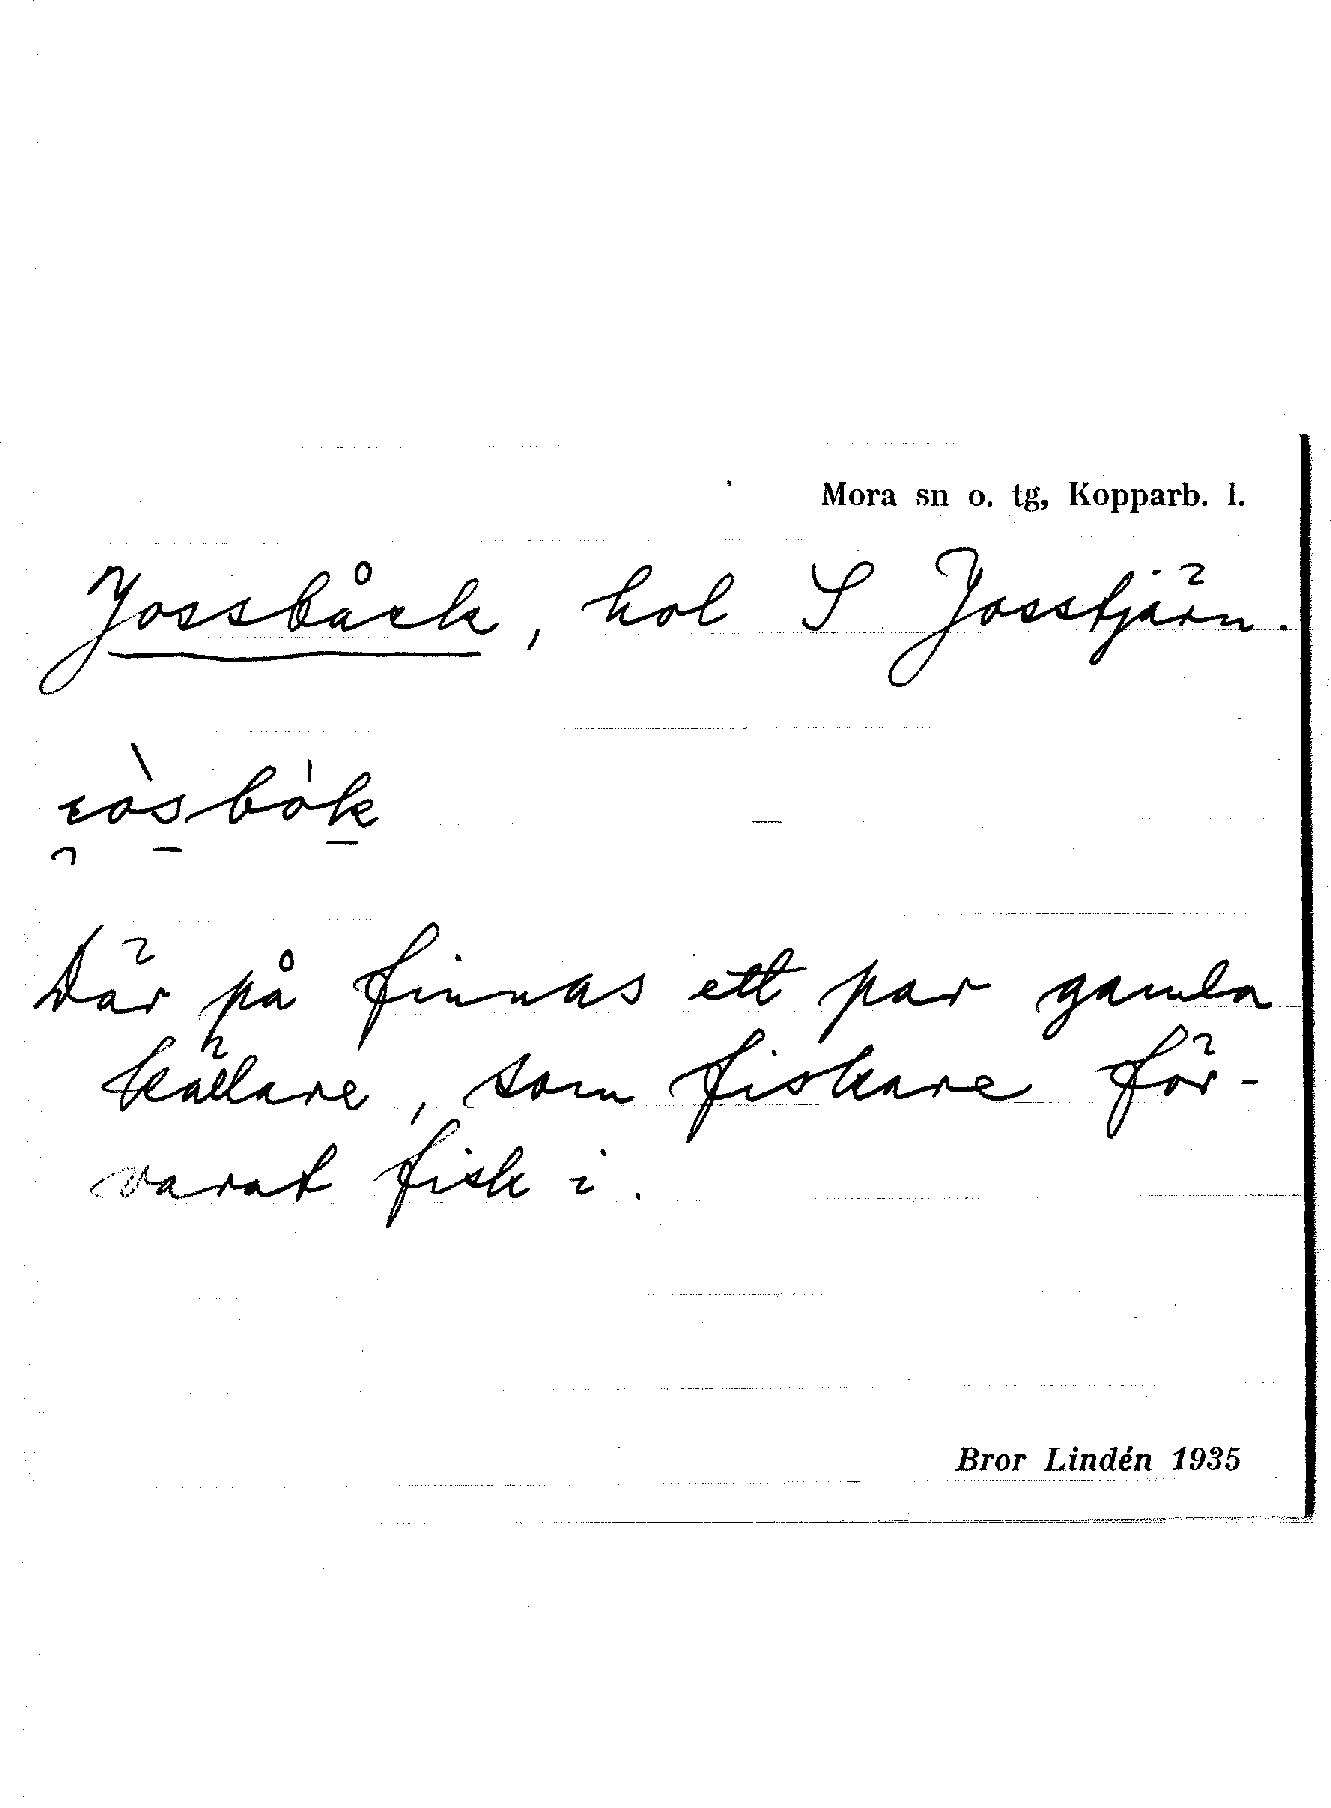 Mora sn o. tg, Kopparb. l.
Jossbåck, hol S Josstjärn.
Där på finnas ett par gamla
källare, som fiskare för-
varat fisk i.
Bror Lindén 1935